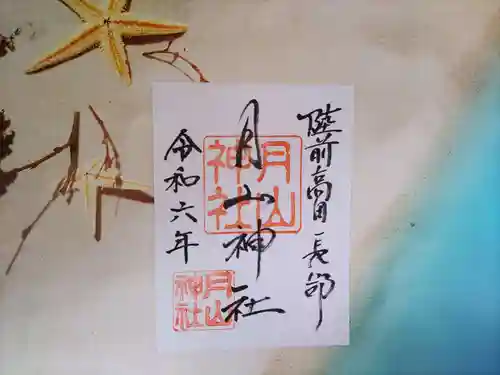 陸前高田長部
月山神社
令和六年
月山神社
月山神社